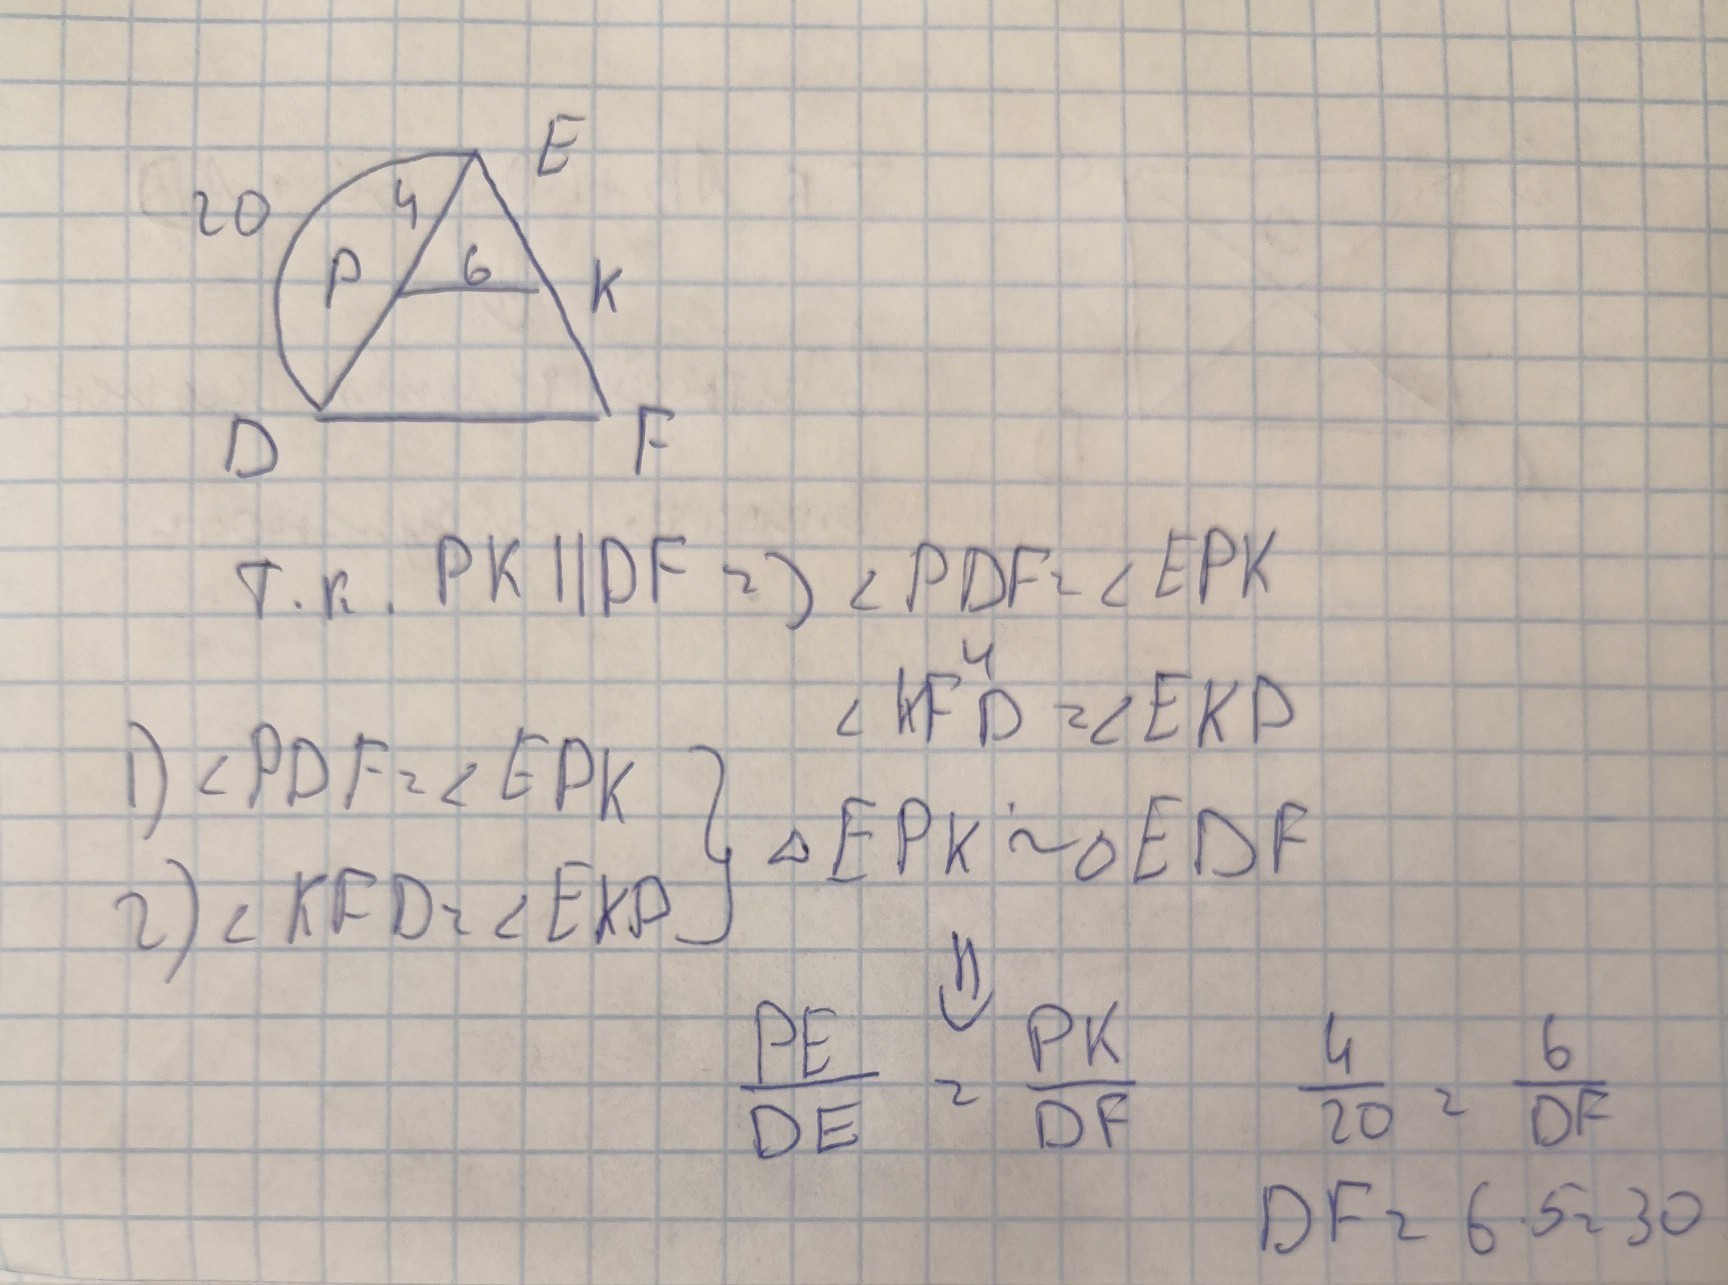 E
20
4
P
6
K
D
F
т.к. PK || DF => <PDF = <EPK
и
<KFD = <EKP
1) <PDF = <EPK
2) <KFD = <EKP } △EPK ~ △EDF
⇓
PE/DE = PK/DF 4/20 = 6/DF
DF = 6·5 = 30